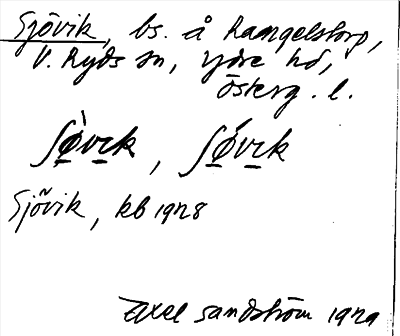 Sjövik, bs. å Ramgelstorp,
V. Ryds sn, Ydre hd,
Österg. l.
ʃø̀vɩk, ʃǿvɩk
Sjövik, kb 1928
Axel Sandström 1929